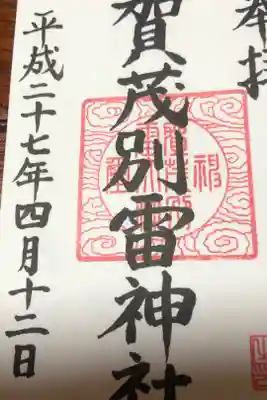 奉拝
賀茂別雷神社
平成二十七年四月十二日